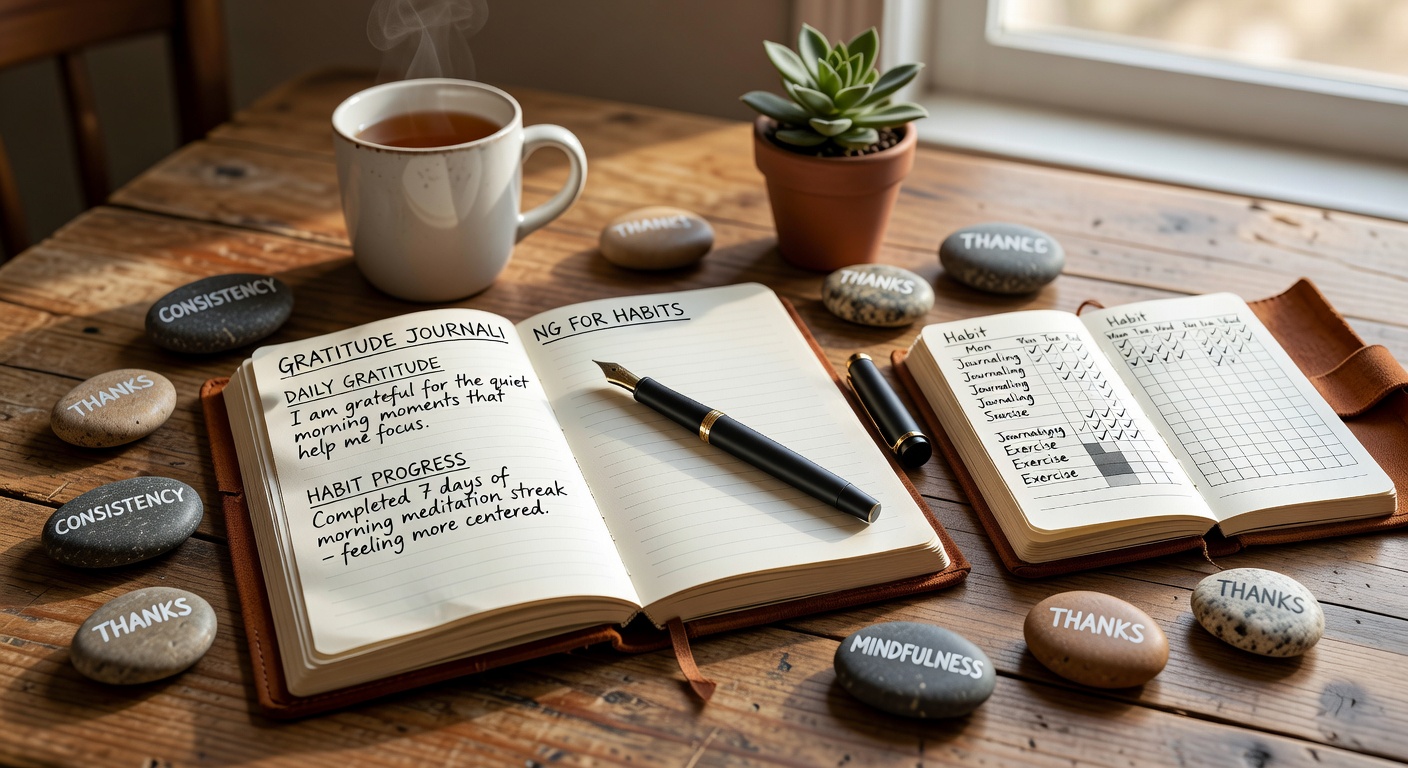 GRATITUDE JOURNALI
NG FOR HABITS
DAILY GRATITUDE
I am grateful for the quiet
morning moments that
help me focus.
HABIT PROGRESS
Completed 7 days of
morning meditation streak
– feeling more centered.
CONSISTENCY
THANKS
CONSISTENCY
THANKS
THANKS
THANKS
MINDFULNESS
THANKS
THANKS
Habit
Mon
Journaling
Journaling
Journaling
Exercise
Exercise
Exercise
Habit